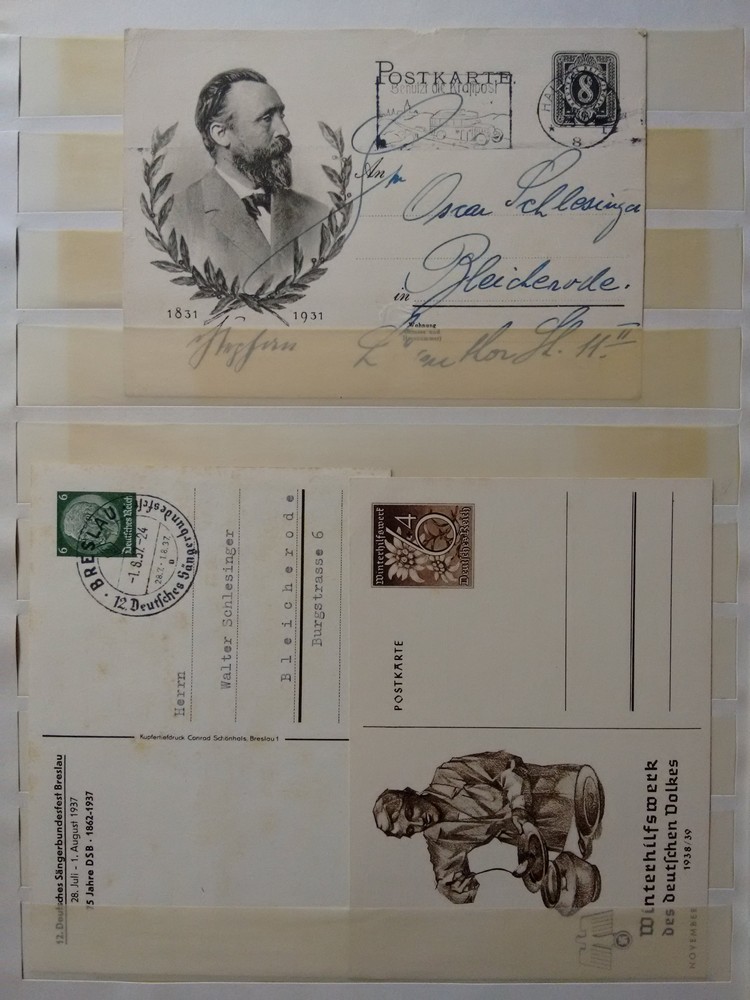 POSTKARTE.
Benutzt die Kraftpost
8
8
An
Oscar Schlesinger
in Bleicherode.
Wohnung
1831 1931
Stephan
6
6
Deutsches Reich
BRESLAU
-1.8.37.-24
28.7.-1.8.37.
12. Deutsches Sängerbundesfest
Herrn
Walter Schlesinger
Bleicherode
Burgstrasse 6
Kupfertiefdruck Conrad Schönhals, Breslau 1
12. Deutsches Sängerbundesfest Breslau
28. Juli - 1. August 1937
75 Jahre DSB · 1862-1937
Winterhilfswerk
6+4
Deutsches Reich
POSTKARTE
Winterhilfswerk
des Deutschen Volkes
1938/39
NOVEMBER